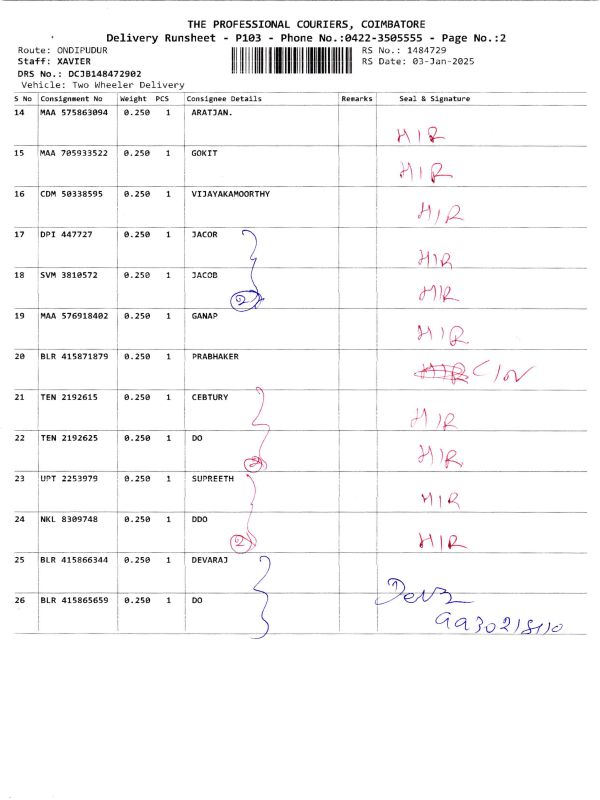 THE PROFESSIONAL COURIERS, COIMBATORE
Delivery Runsheet - P103 - Phone No.:0422-3505555 - Page No.:2
Route: ONDIPUDUR RS No.: 1484729
Staff: XAVIER RS Date: 03-Jan-2025
DRS No.: DCJB148472902
Vehicle: Two Wheeler Delivery
S No Consignment No Weight PCS Consignee Details Remarks Seal & Signature
14 MAA 575863094 0.250 1 ARATJAN.
H/R
15 MAA 705933522 0.250 1 GOKIT
H/R
16 CDM 50338595 0.250 1 VIJAYAKAMOORTHY
H/R
17 DPI 447727 0.250 1 JACOR
H/R
18 SVM 3810572 0.250 1 JACOB
2 H/R
19 MAA 576918402 0.250 1 GANAP
H/R
20 BLR 415871879 0.250 1 PRABHAKER
21 TEN 2192615 0.250 1 CEBTURY
H/R
22 TEN 2192625 0.250 1 DO
2 H/R
23 UPT 2253979 0.250 1 SUPREETH
H/R
24 NKL 8309748 0.250 1 DDO
2 H/R
25 BLR 415866344 0.250 1 DEVARAJ
26 BLR 415865659 0.250 1 DO